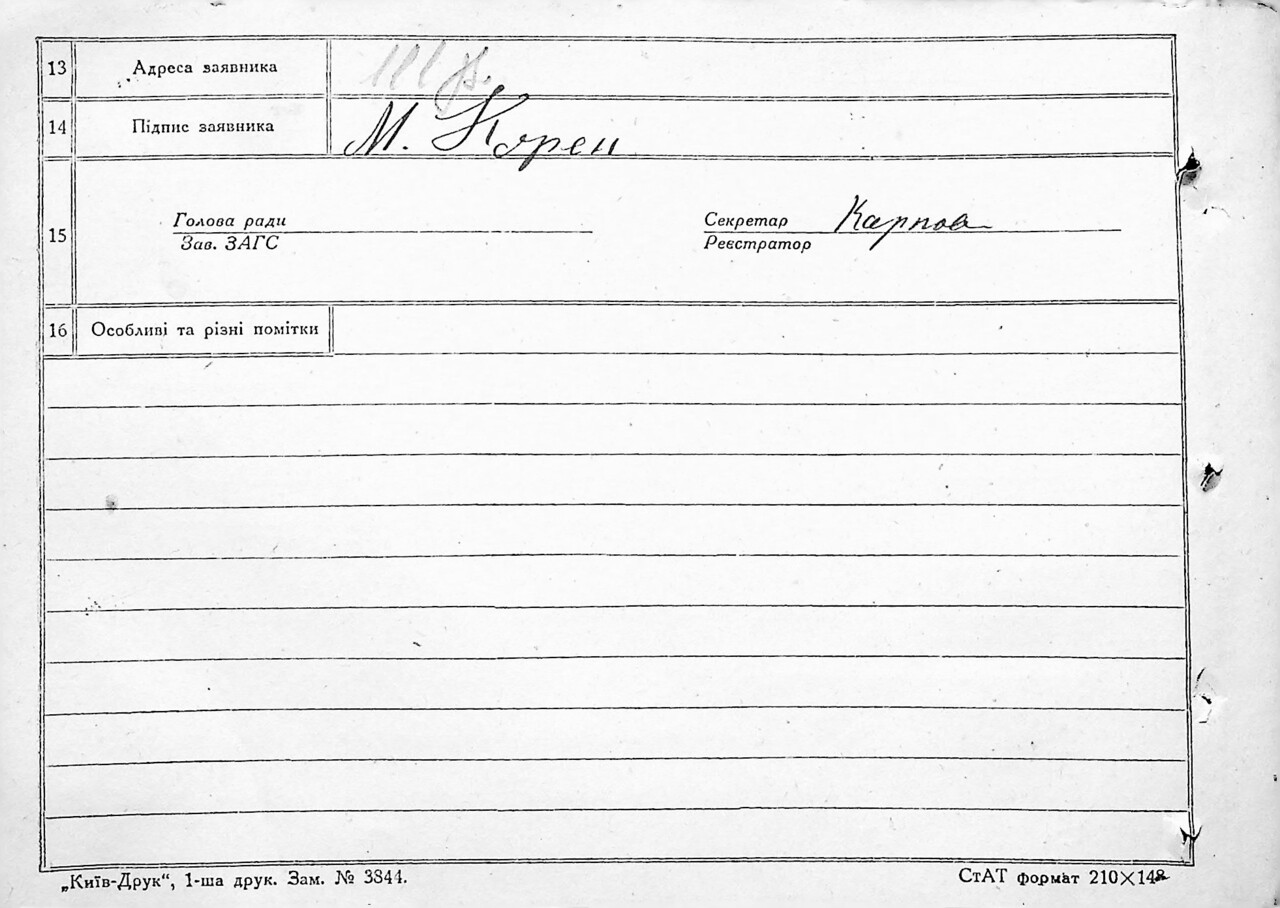 13 Адреса заявника
14 Підпис заявника М. Корен
15 Голова ради Секретар Карпова
Зав. ЗАГС Реєстратор
16 Особливі та різні помітки
„Київ-Друк“, 1-ша друк. Зам. № 3844. СтАТ формат 210×148